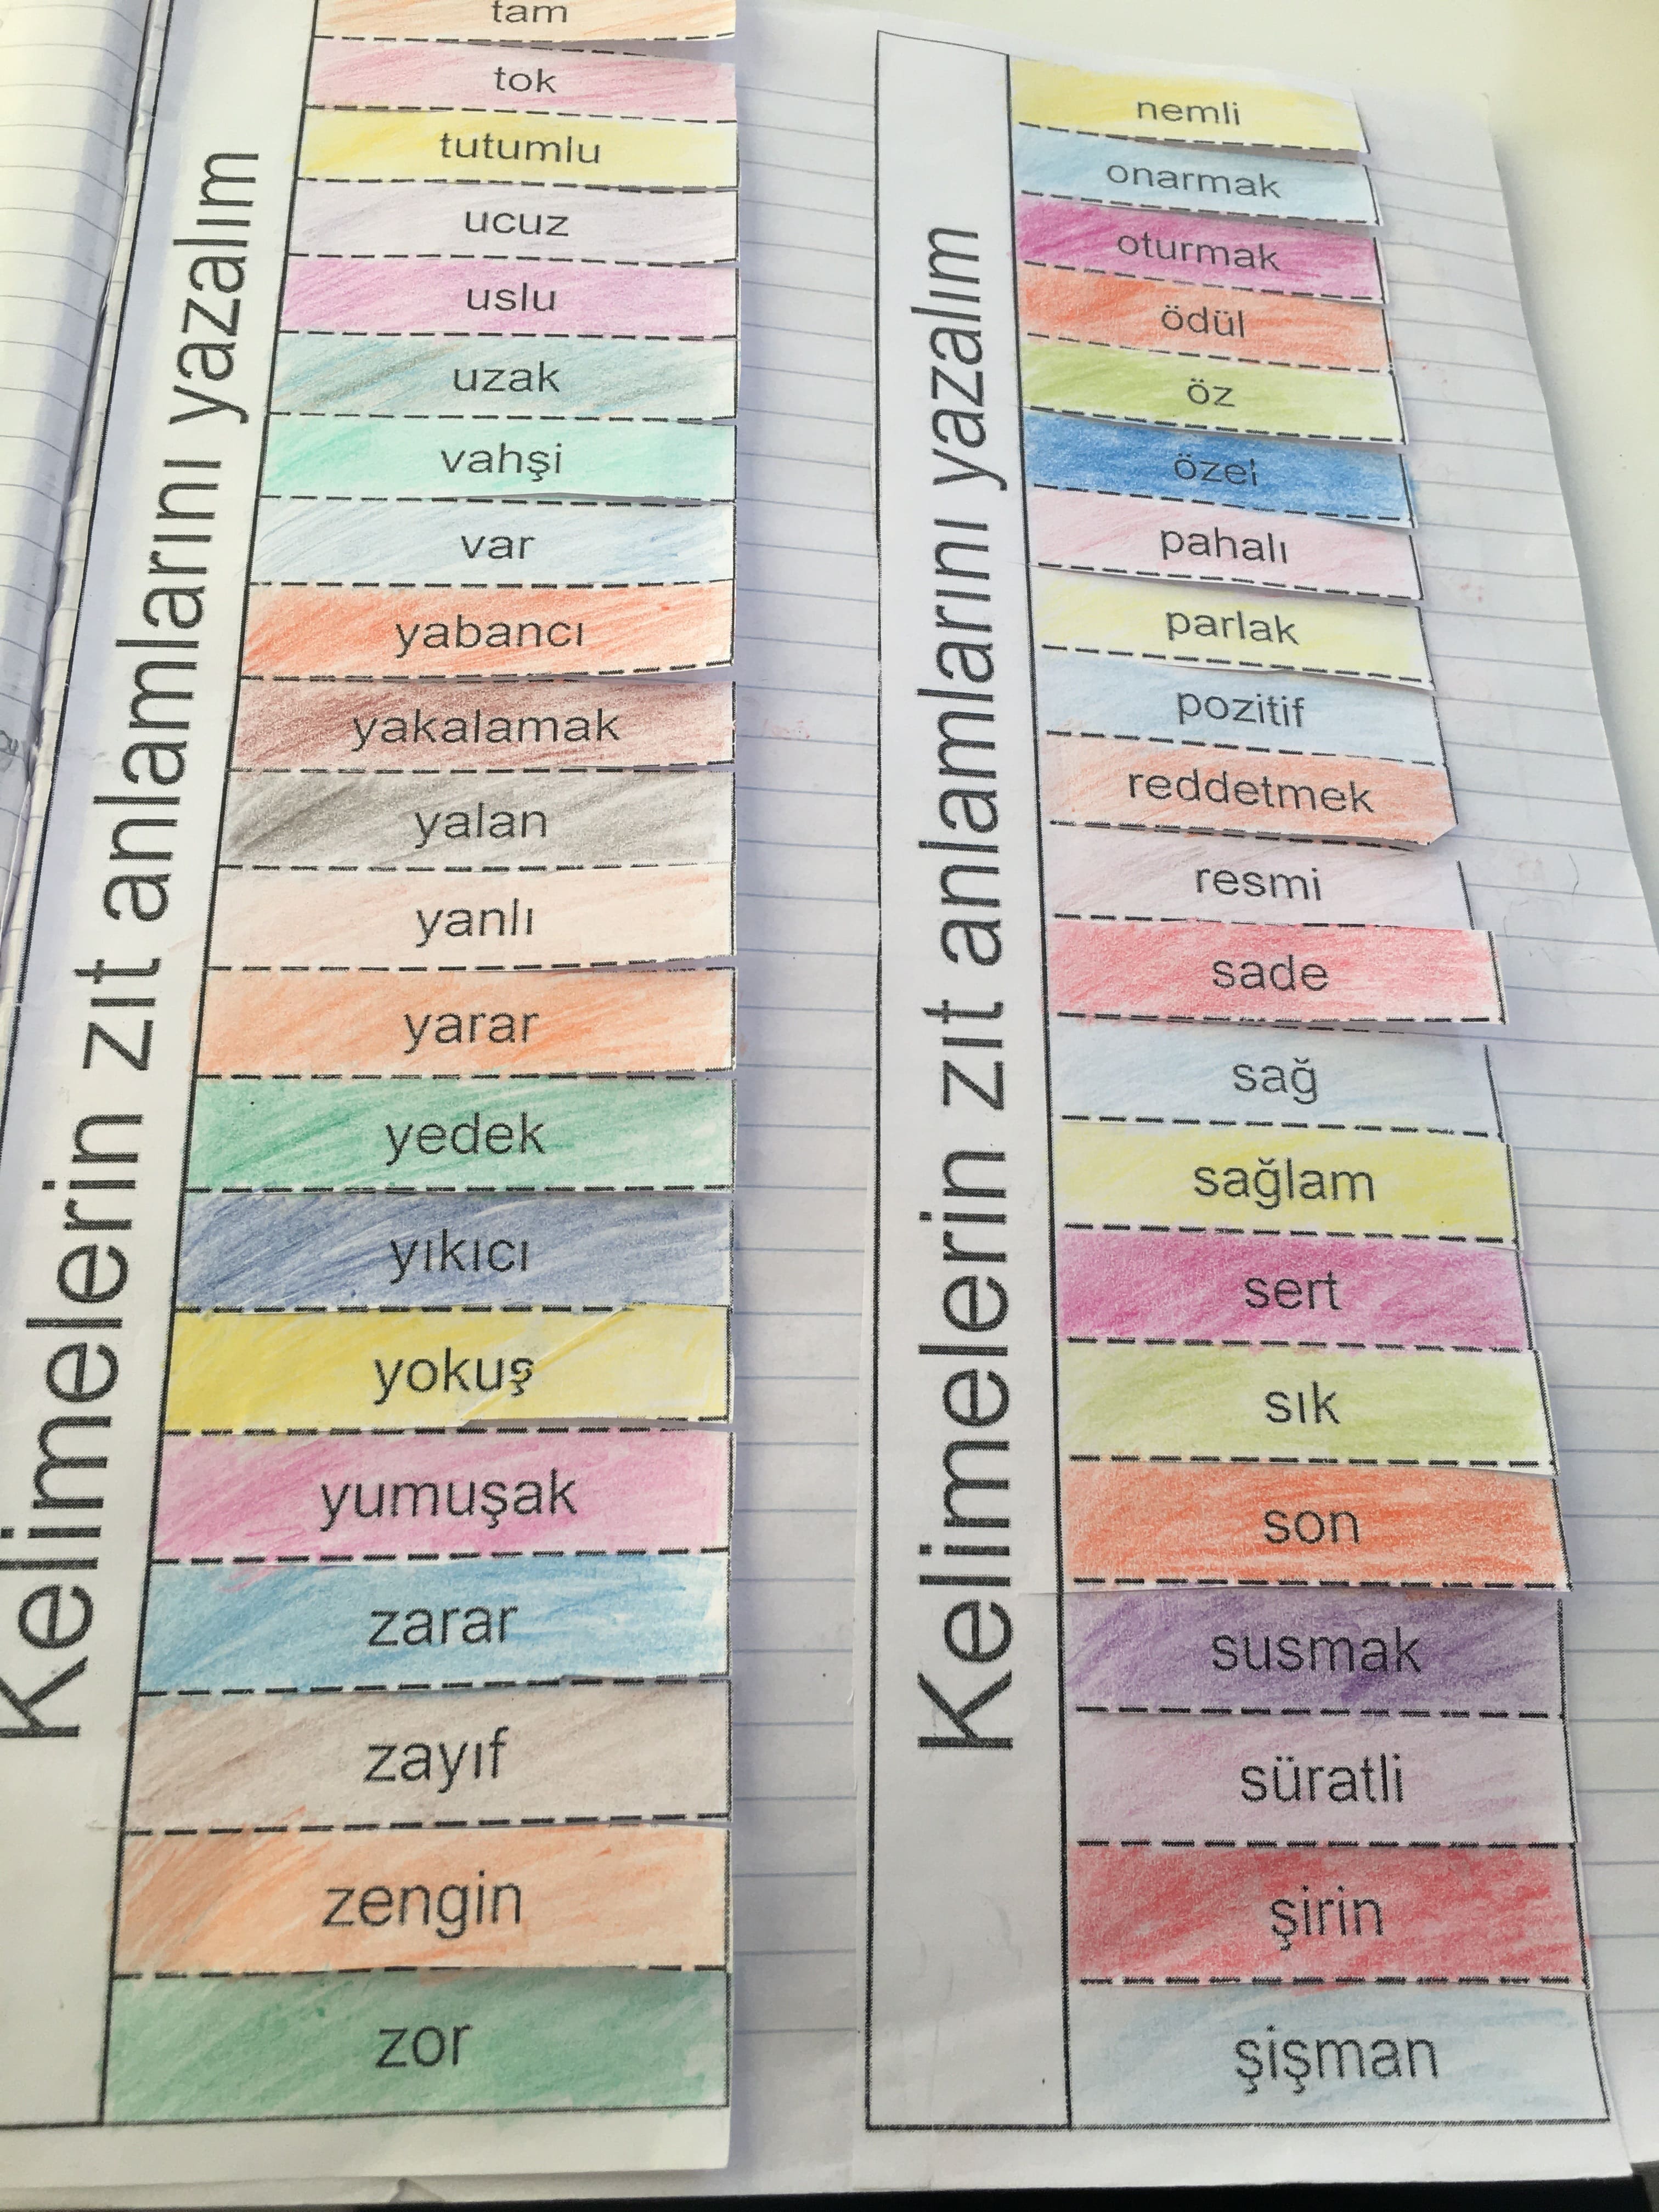 Kelimelerin zıt anlamlarını yazalım
tam
tok
tutumlu
ucuz
uslu
uzak
vahşi
var
yabancı
yakalamak
yalan
yanlı
yarar
yedek
yıkıcı
yokuş
yumuşak
zarar
zayıf
zengin
zor
Kelimelerin zıt anlamlarını yazalım
nemli
onarmak
oturmak
ödül
öz
özel
pahalı
parlak
pozitif
reddetmek
resmi
sade
sağ
sağlam
sert
sık
son
susmak
süratli
şirin
şişman